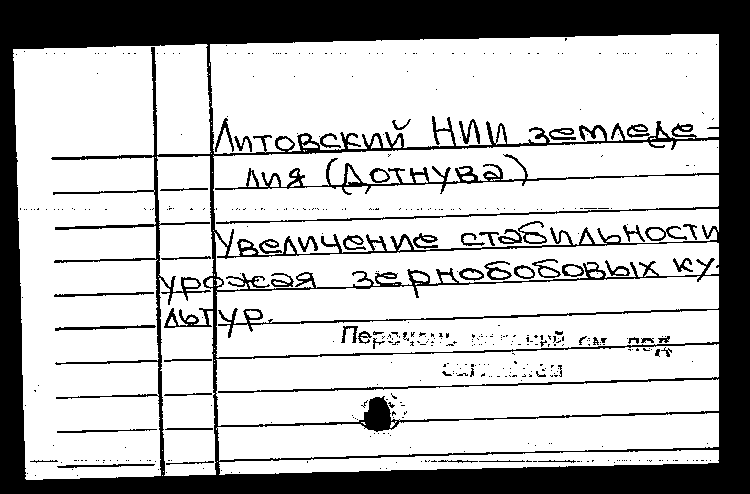 Литовский НИИ земледе-
лия (Дотнува)
Увеличение стабильности
урожая зернобобовых ку-
льтур.
Перечень изданий см. под
заглавием